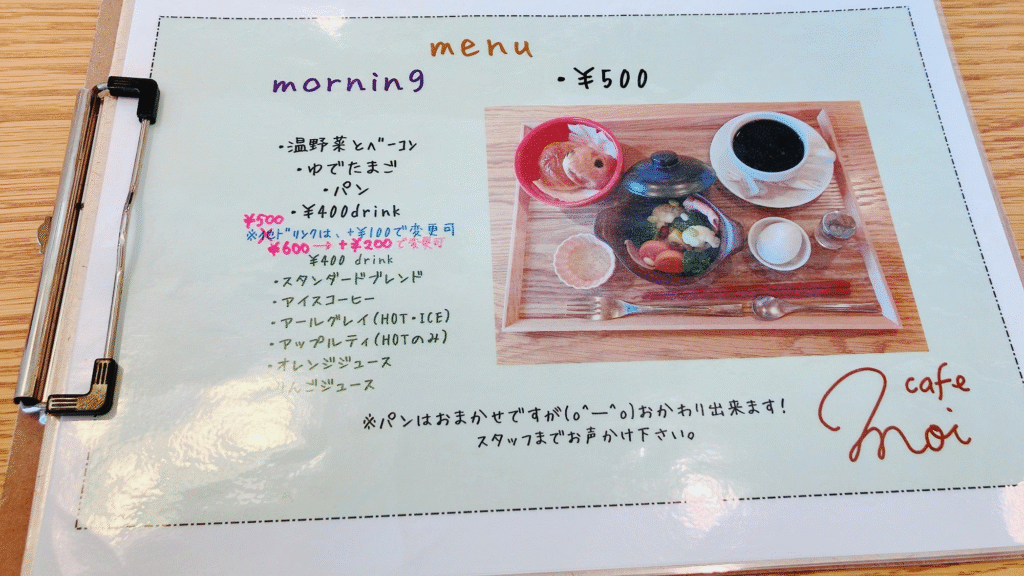 menu
morning
・¥500
・温野菜とベーコン
・ゆでたまご
・パン
・¥400drink
¥500
※他ドリンクは、+¥100で変更可
¥600 → +¥200で変更可
¥400 drink
・スタンダードブレンド
・アイスコーヒー
・アールグレイ(HOT・ICE)
・アップルティ(HOTのみ)
・オレンジジュース
りんごジュース
※パンはおまかせですが(o^―^o)おかわり出来ます!
スタッフまでお声かけ下さい。
cafe
moi